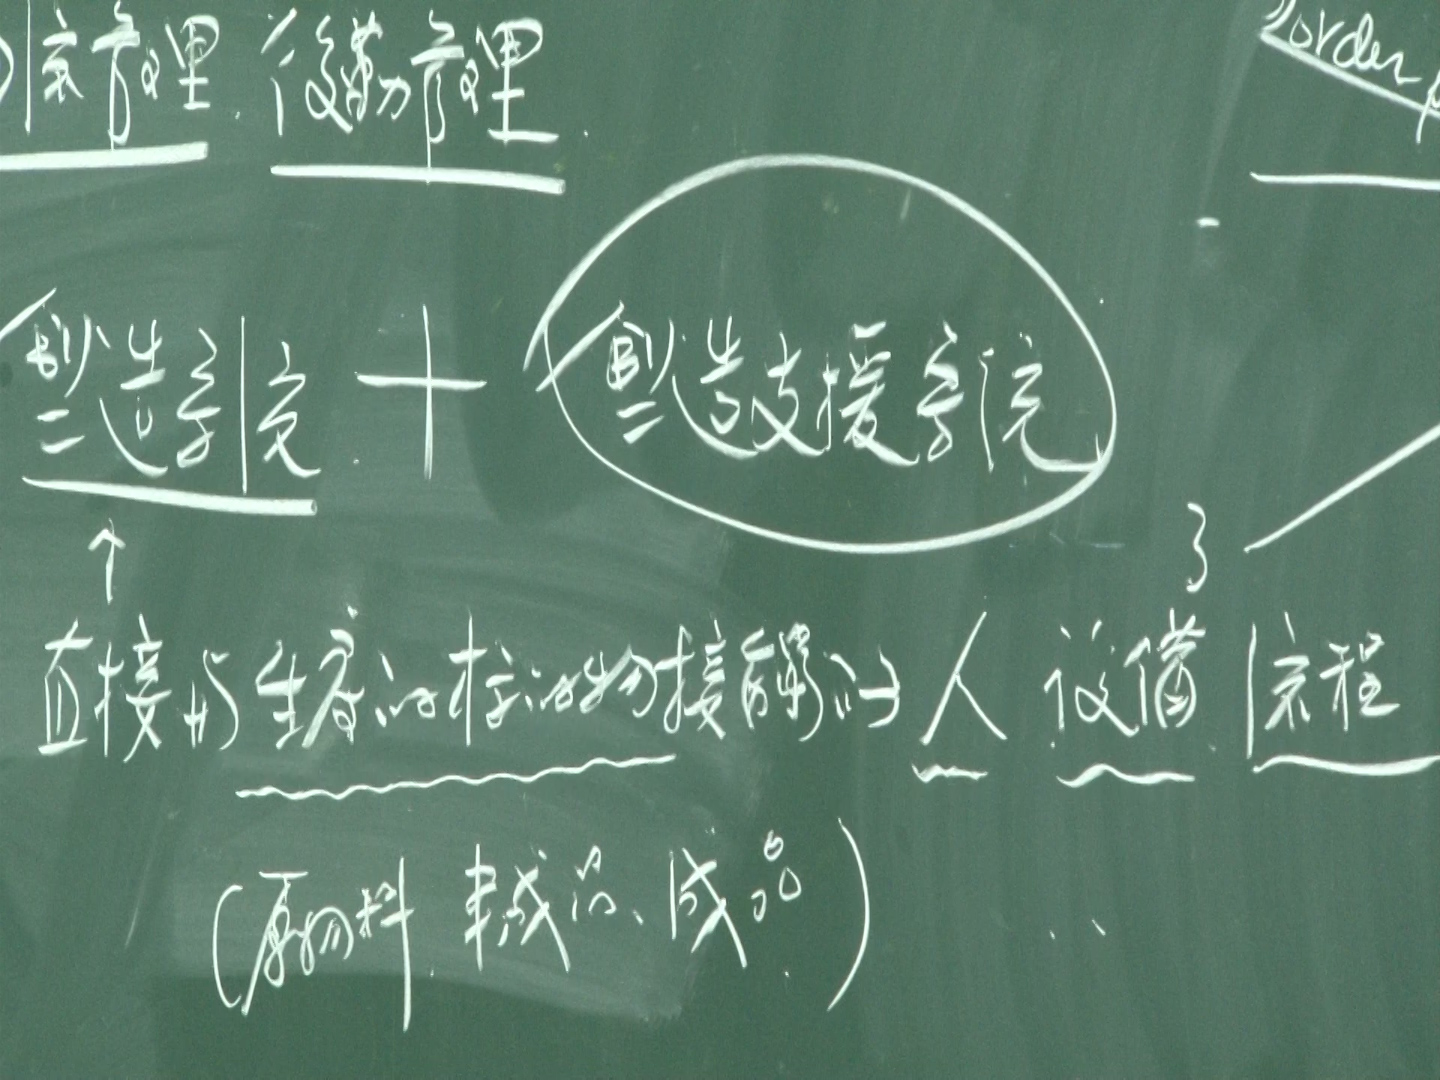 流管理、後勤管理
order
製造系統 + 製造支援系統
直接與生產的標的物接觸的人 設備 流程
(原物料、半成品、成品)